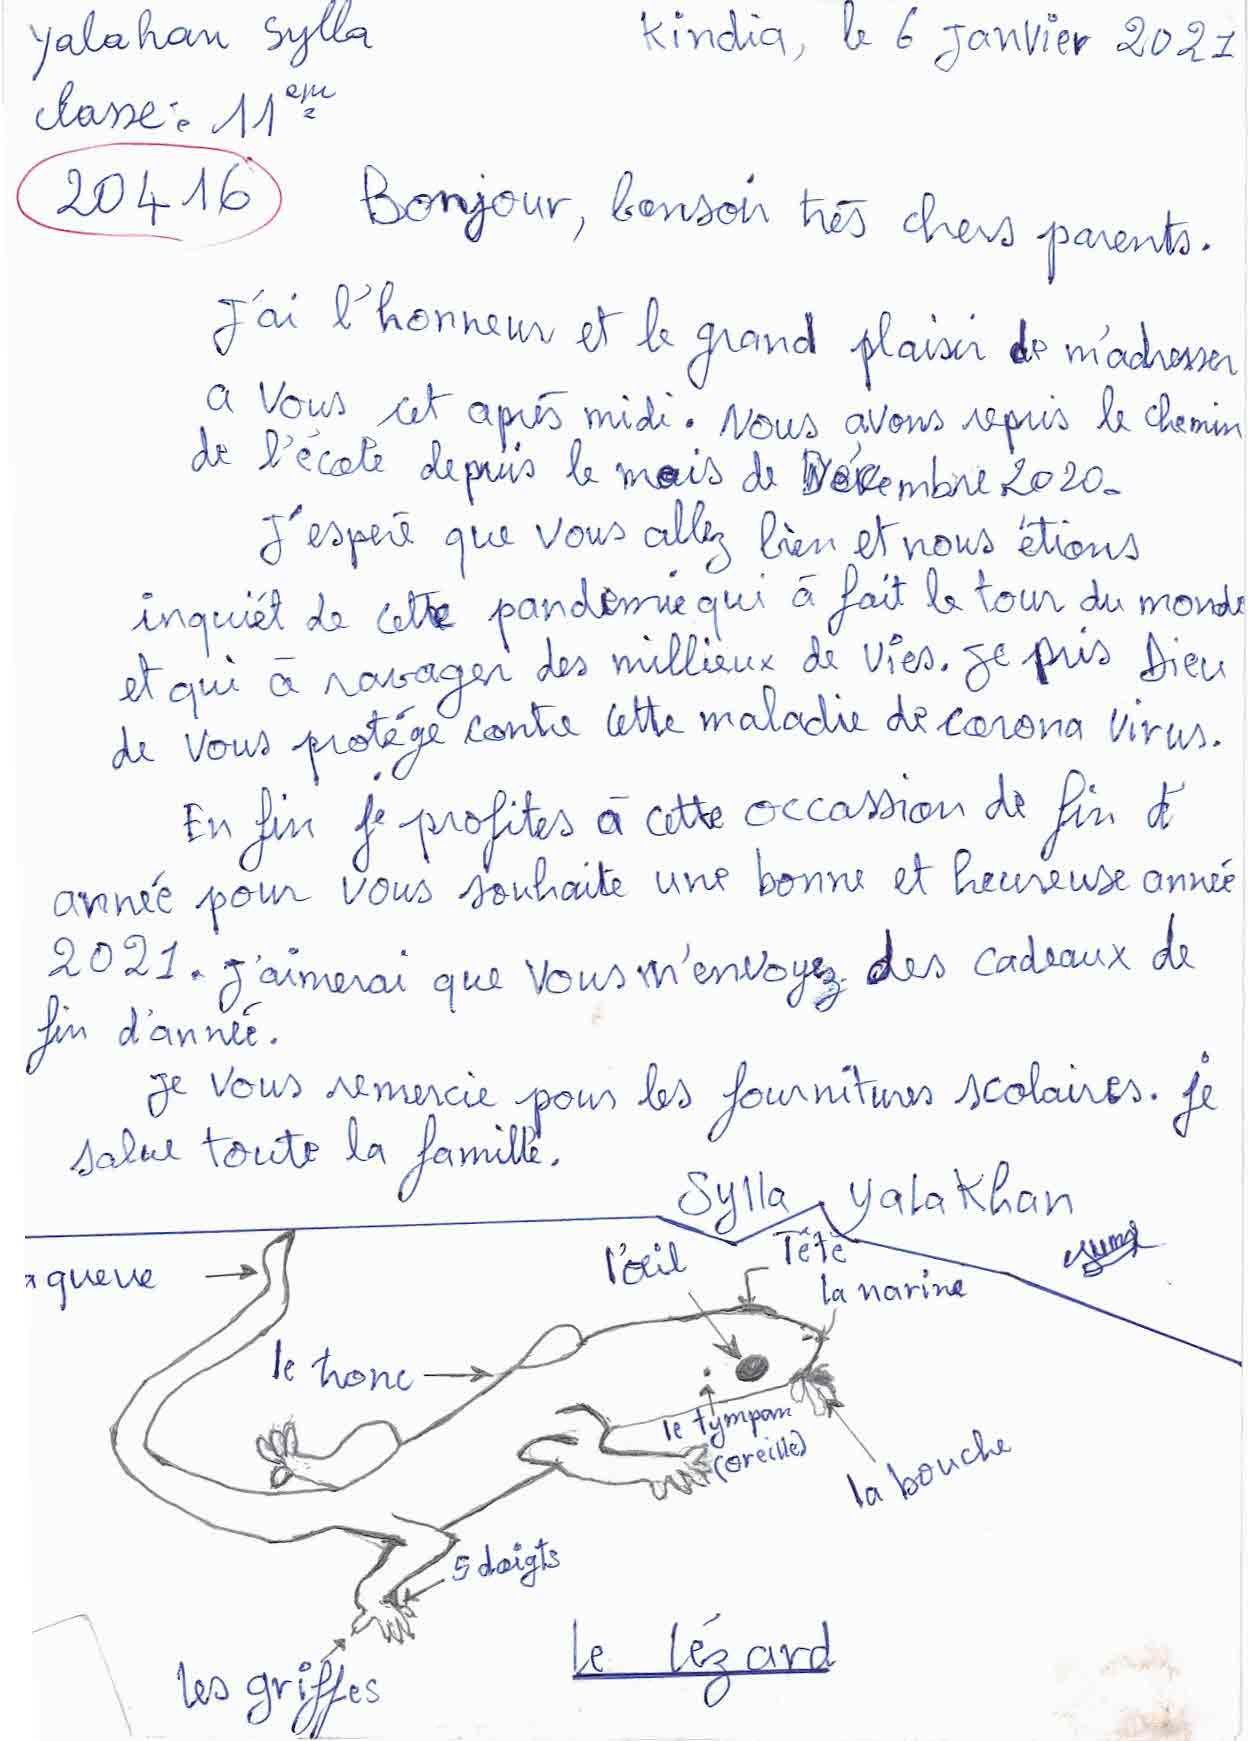 Yalahan Sylla
Kindia, le 6 Janvier 2021
classe: 11ème
20416
Bonjour, bonsoir très chers parents.
J'ai l'honneur et le grand plaisir de m'adresser
a vous cet après midi. Nous avons repris le chemin
de l'école depuis le mois de Décembre 2020.
J'esperé que vous allez bien et nous étions
inquiét de cette pandémie qui à fait le tour du monde
et qui à ravager des millieux de vies. Je pris Dieu
de vous protégé contre cette maladie de corona virus.
En fin je profites à cette occassion de fin d'
année pour vous souhaite une bonne et heureuse année
2021. J'aimerai que vous m'envoyez des cadeaux de
fin d'année.
Je vous remercie pour les fournitures scolaires. je
salue toute la famille.
Sylla Yalakhan
queue
l'œil
Tête
la narine
le tronc
le tympan
(oreille)
la bouche
5 doigts
les griffes
le lézard